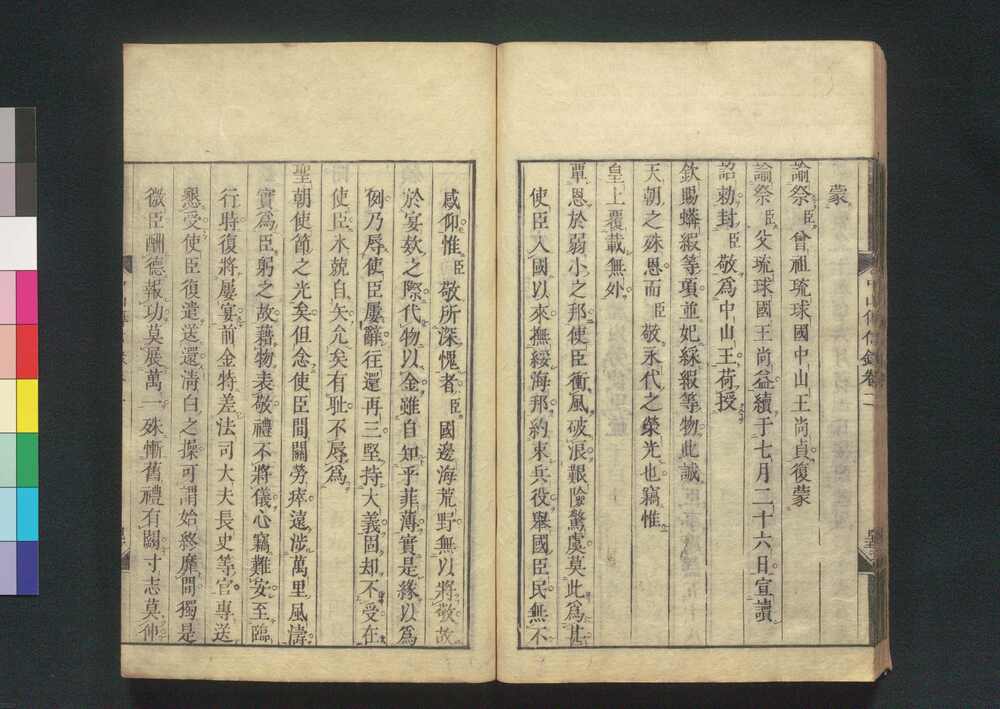 蒙
諭祭臣曾祖琉球國中山王尚貞復蒙
諭祭臣父琉球國王尚益續于七月二十六日宣讀
詔勅封臣敬爲中山王荷授
欽賜蟒緞等項並妃綵緞等物此誠
天朝之殊恩而臣敬永代之榮光也竊惟
皇上覆載無外
覃恩於弱小之邦使臣衝風破浪艱險驚虞莫此爲甚
使臣入國以來撫綏海邦約束兵役舉國臣民無不
感仰惟臣敬所深愧者臣國邊海荒野無以將敬故
於宴欵之際代物以金雖自知乎菲薄實是緣以爲
例乃辱使臣屢辭往還再三堅持大義固却不受在
使臣氷兢自矢允矣有耻不辱爲
聖朝使節之光矣但念使臣間關勞瘁遠涉萬里風濤
實爲臣躬之故藉物表敬禮不將儀心竊難安至臨
行時復將屢宴前金特差法司大夫長史等官專送
懇受使臣復遣送還淸白之操可謂始終靡間獨是
微臣酬德報功莫展萬一殊慚舊禮有闕寸志莫伸